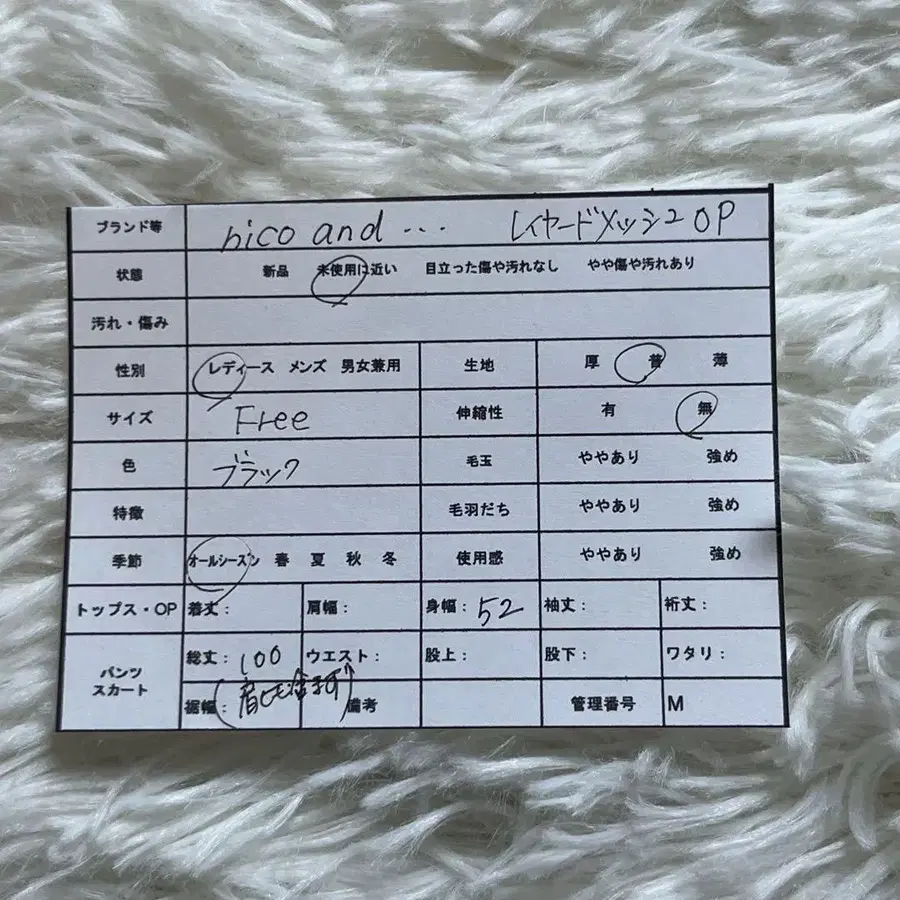 ブランド等 nico and ... レイヤードメッシュOP
状態 新品 未使用に近い 目立った傷や汚れなし やや傷や汚れあり
汚れ・傷み
性別 レディース メンズ 男女兼用 生地 厚 普 薄
サイズ Free 伸縮性 有 無
色 ブラック 毛玉 ややあり 強め
特徴 毛羽だち ややあり 強め
季節 オールシーズン 春 夏 秋 冬 使用感 ややあり 強め
トップス・OP 着丈: 肩幅: 身幅: 52 袖丈: 裄丈:
パンツ スカート 総丈: 100 ウエスト: 股上: 股下: ワタリ:
裾幅: 備考 管理番号 M